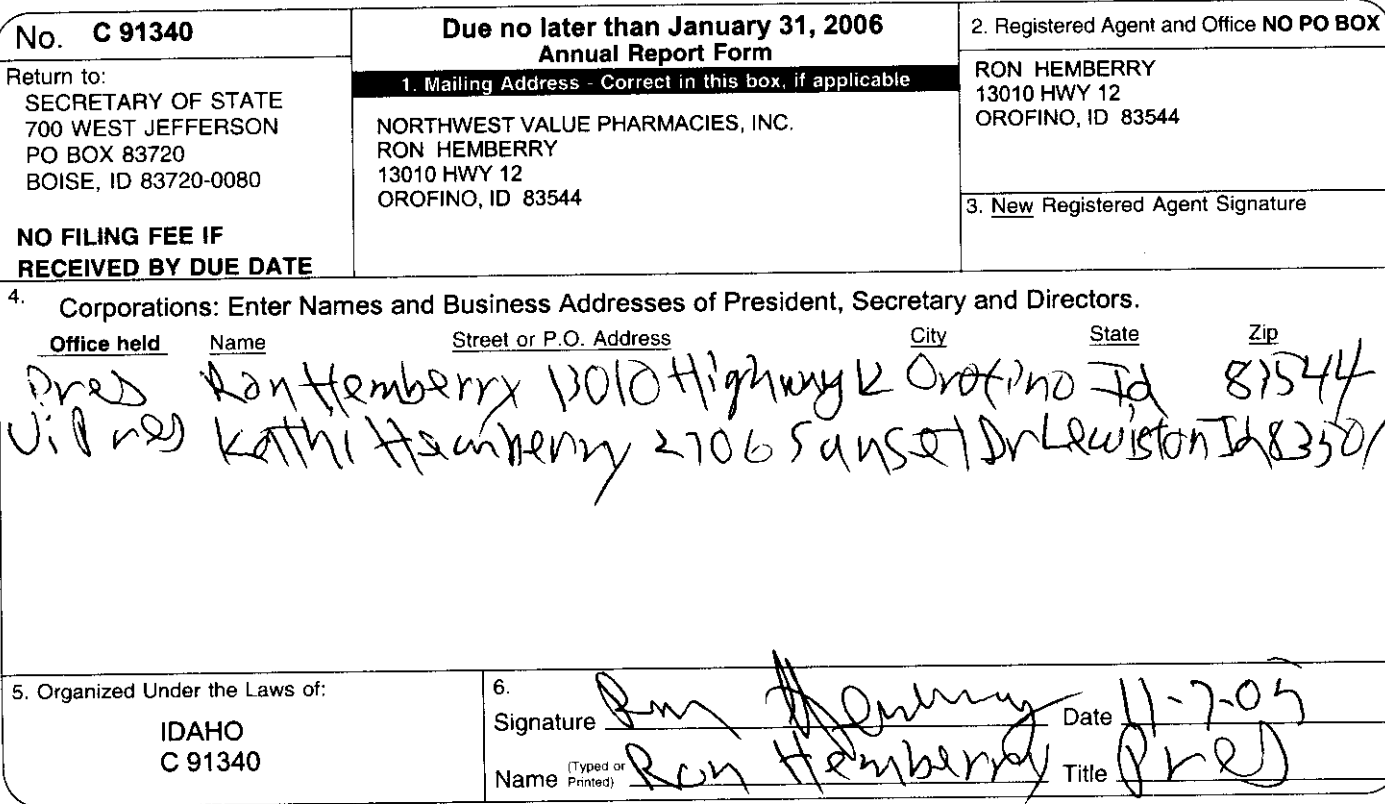 No. C 91340
Return to:
SECRETARY OF STATE
700 WEST JEFFERSON
PO BOX 83720
BOISE, ID 83720-0080
NO FILING FEE IF
RECEIVED BY DUE DATE
Due no later than January 31, 2006
Annual Report Form
1. Mailing Address - Correct in this box, if applicable
NORTHWEST VALUE PHARMACIES, INC.
RON HEMBERRY
13010 HWY 12
OROFINO, ID 83544
2. Registered Agent and Office NO PO BOX
RON HEMBERRY
13010 HWY 12
OROFINO, ID 83544
3. New Registered Agent Signature
4. Corporations: Enter Names and Business Addresses of President, Secretary and Directors.
Office held Name Street or P.O. Address City State Zip
Pres Ron Hemberry 13010 Highway 12 Orofino Id 83544
Vi Pres Kathi Hemberry 2706 Sunset Dr Lewiston Id 83501
5. Organized Under the Laws of:
IDAHO
C 91340
6.
Signature Ron Hemberry Date 11-7-05
Name (Typed or Printed) Ron Hemberry Title Pres